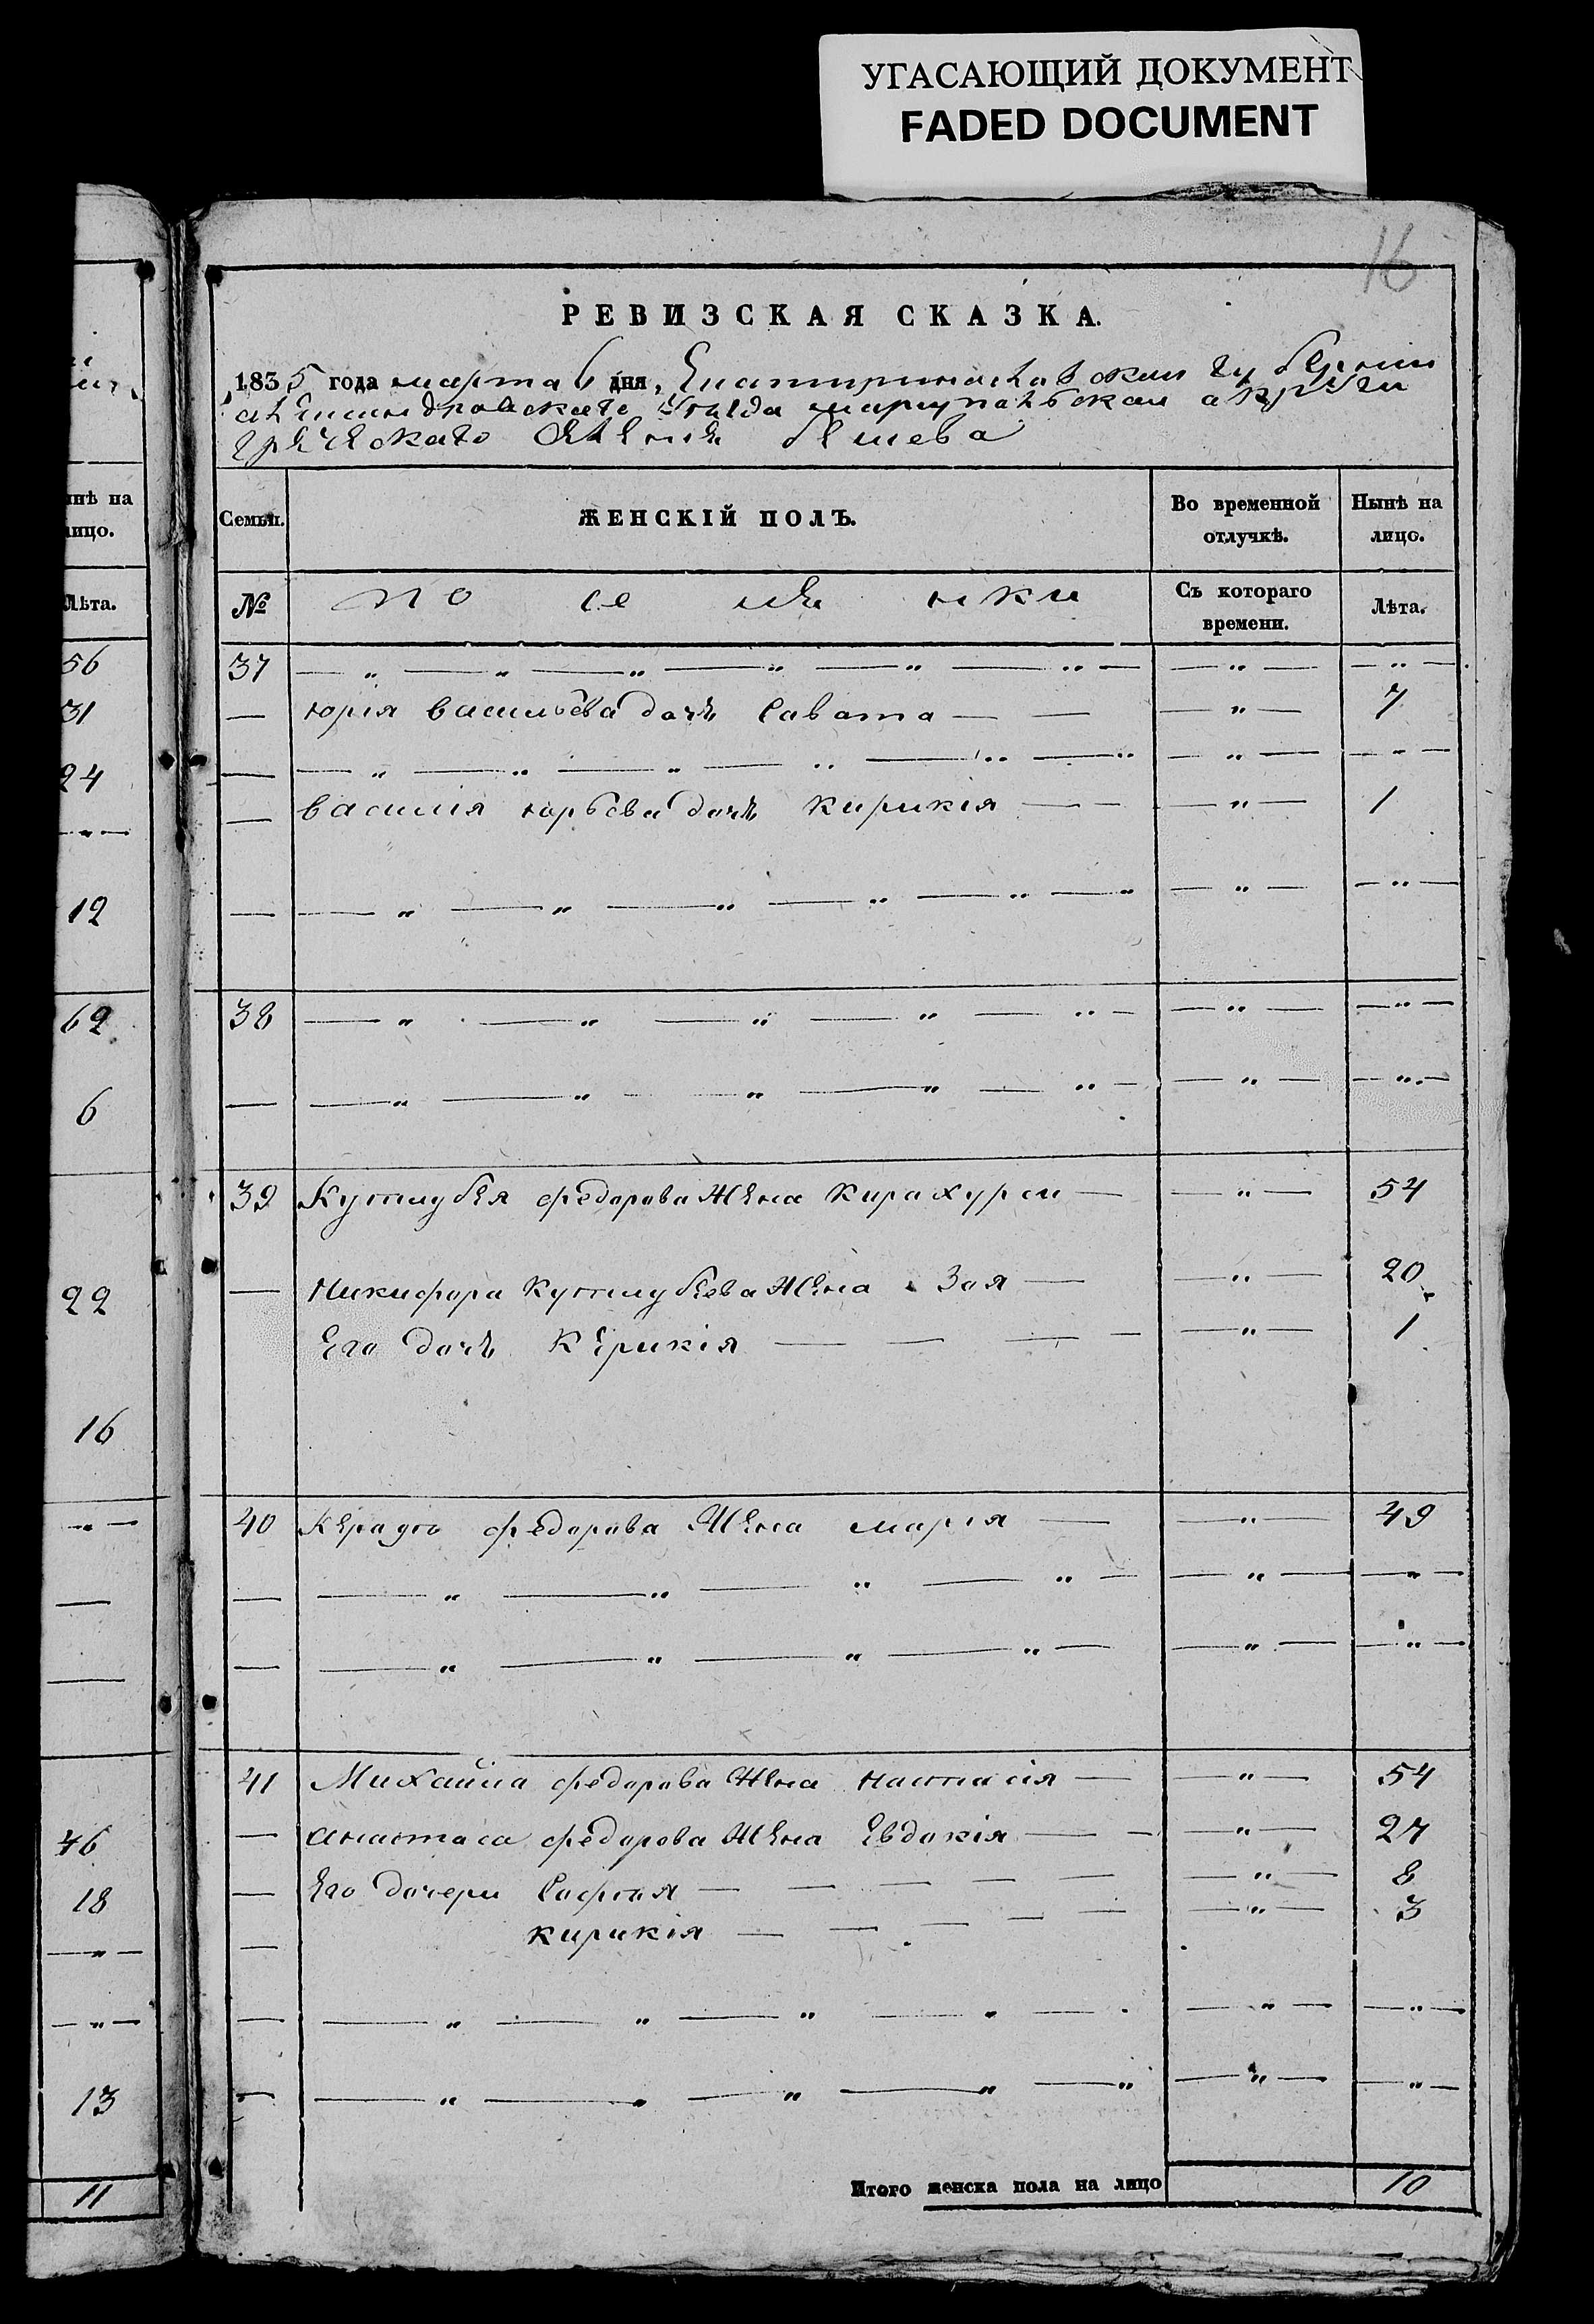 УГАСАЮЩИЙ ДОКУМЕНТ
FADED DOCUMENT
16
РЕВИЗСКАЯ СКАЗКА.
1835 года марта 6 дня, Екатиринославской губернии
александровскаго уезда мариупольской округи
греческаго селения бешева
Семьи. ЖЕНСКІЙ ПОЛЪ. Во временной отлучкѣ. Нынѣ на лицо.
№ по се ля нки Съ котораго времени. Лѣта.
37 — „ — „ — „ — „ — „ — „ — — „ — — „ —
— юрія васильева дочь Савата — — — „ — 7
— — „ — „ — „ — „ — „ — „ — „ — — „ —
— василія юрьева дочь кирикія — — — „ — 1
— — „ — „ — „ — „ — „ — „ — „ — — „ —
38 — „ — „ — „ — „ — „ — — „ — — „ —
— — „ — „ — „ — „ — „ — — „ — — „ —
39 Кутлубея федорова жена Кирахурси — — „ — 54
— Никифора Кутлубева жена Зоя — — „ — 20
Его дочь Керикія — — — — — „ — 1
40 федорова жена марія — — „ — 49
— — „ — „ — „ — „ — — „ — — „ —
— — „ — „ — „ — „ — — „ — — „ —
41 Михайла федорова жена настасія — — „ — 54
— анастаса федорова жена Евдокія — — — „ — 27
— Его дочери Софія — — — — — — „ — 8
— кирикія — — — — — — „ — 3
— — „ — „ — „ — „ — — „ — — „ —
— — „ — „ — „ — „ — „ — „ — — „ —
Итого женска пола на лицо 10
нѣ на
лицо.
Лѣта.
56
31
24
— „ —
12
62
6
22
16
— „ —
—
—
46
18
— „ —
— „ —
13
11